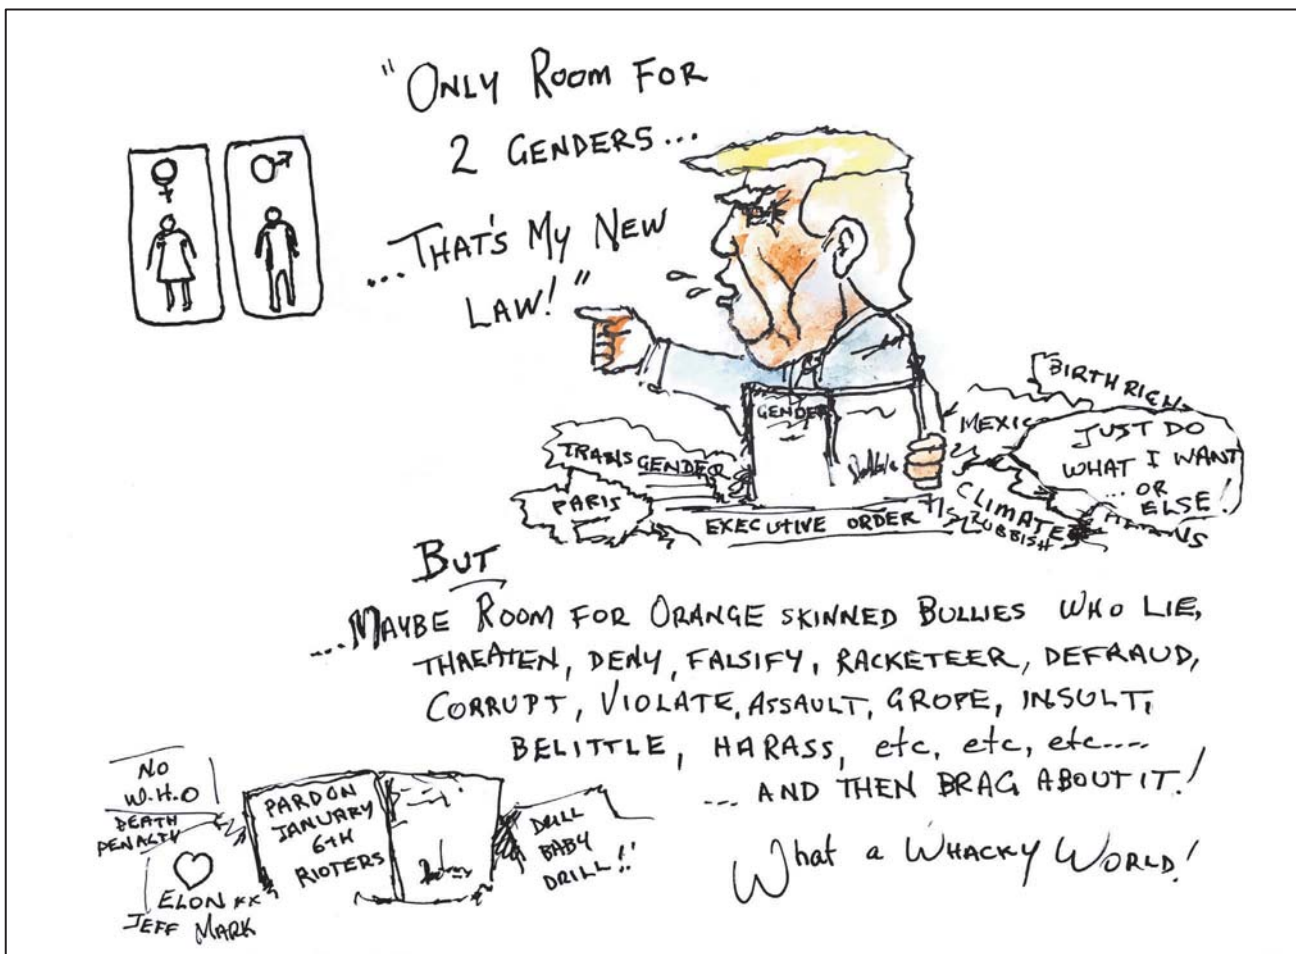 "ONLY ROOM FOR
2 GENDERS...
...THAT'S MY NEW
LAW!"
GENDER
BIRTHRIGH
MEXIC
JUST DO
WHAT I WANT
... OR
ELSE!
TRANSGENDER
PARIS
EXECUTIVE ORDER #
CLIMATE
RUBBISH
BUT
...MAYBE ROOM FOR ORANGE SKINNED BULLIES WHO LIE,
THREATEN, DENY, FALSIFY, RACKETEER, DEFRAUD,
CORRUPT, VIOLATE, ASSAULT, GROPE, INSULT,
BELITTLE, HARASS, etc, etc, etc....
... AND THEN BRAG ABOUT IT!
What a WHACKY WORLD!
NO
W.H.O
DEATH
PENALTY
ELON xx
JEFF MARK
PARDON
JANUARY
6TH
RIOTERS
DRILL
BABY
DRILL!!